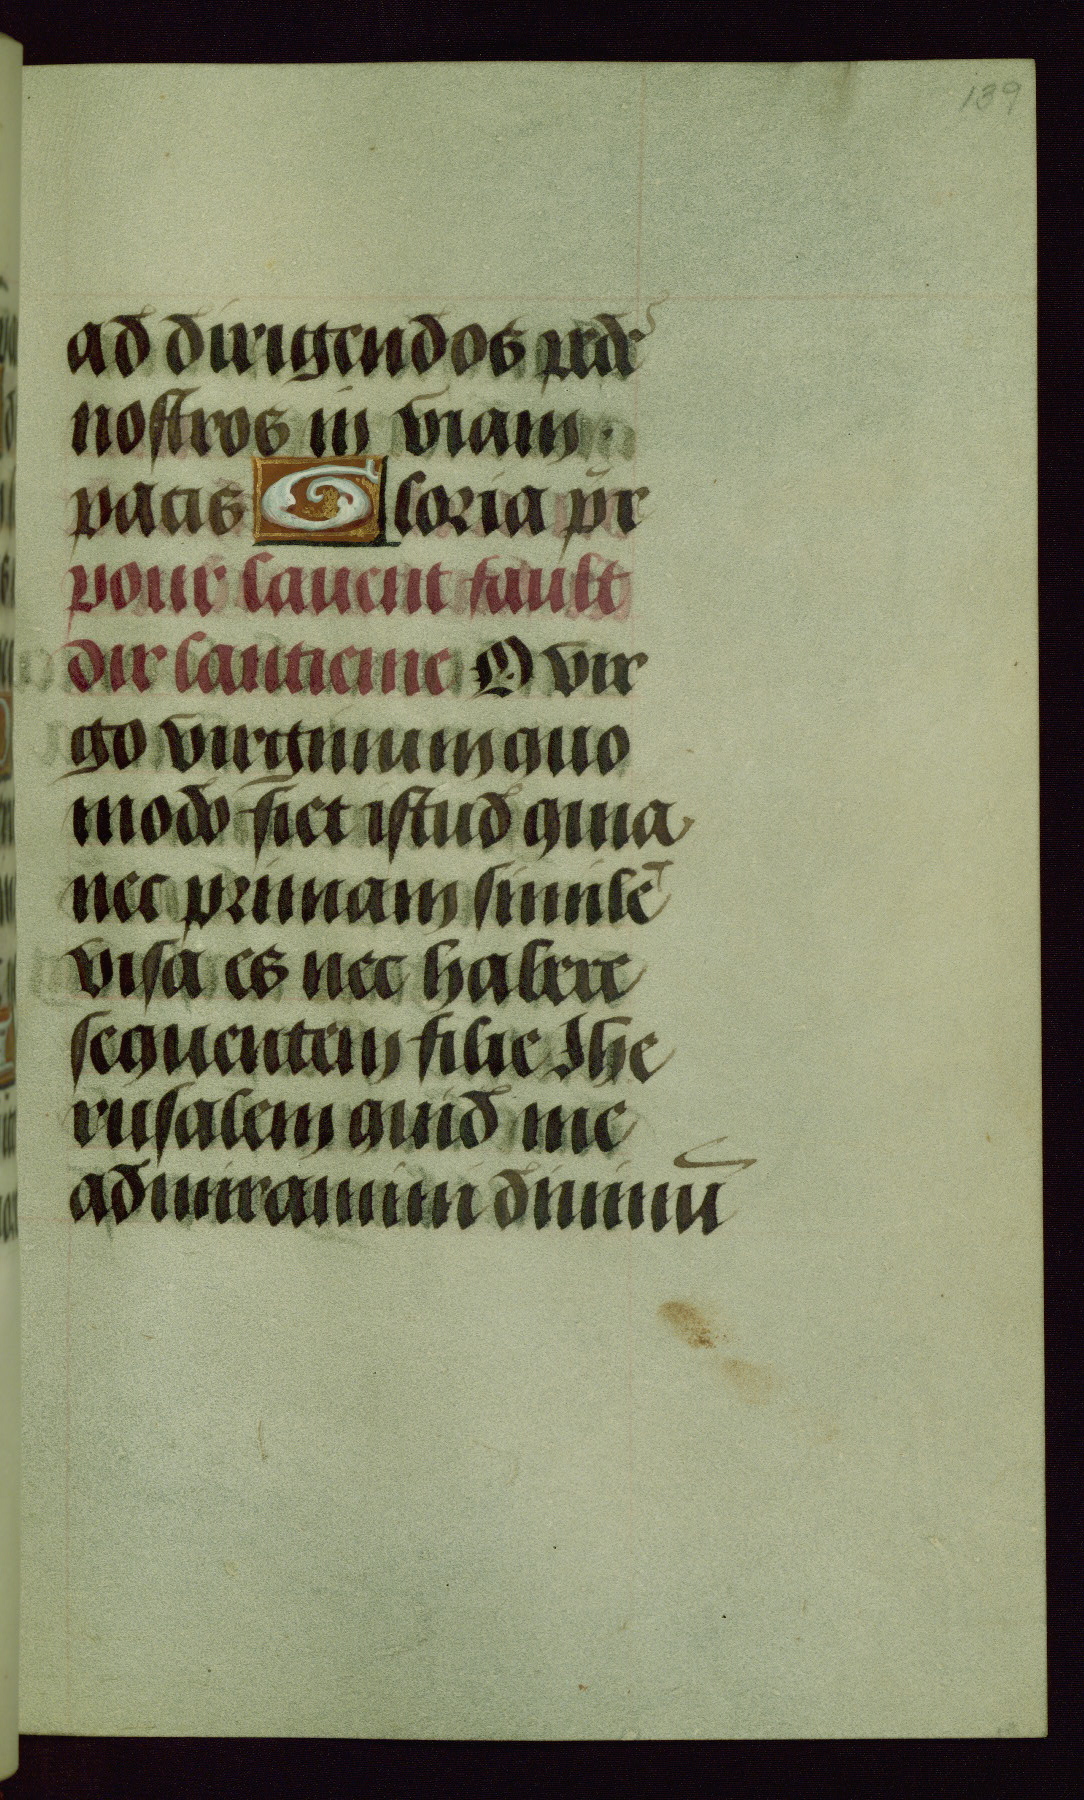 139
ad dirigendos pedes
nostros in viam
pacis Gloria pr̄
pour lauent fault
dir lantienne O vir
go virginum quo
modo fiet istud quia
nec primam similē
visa es nec habere
sequentem filie Ihe
rusalem quid me
admiramini diuinū